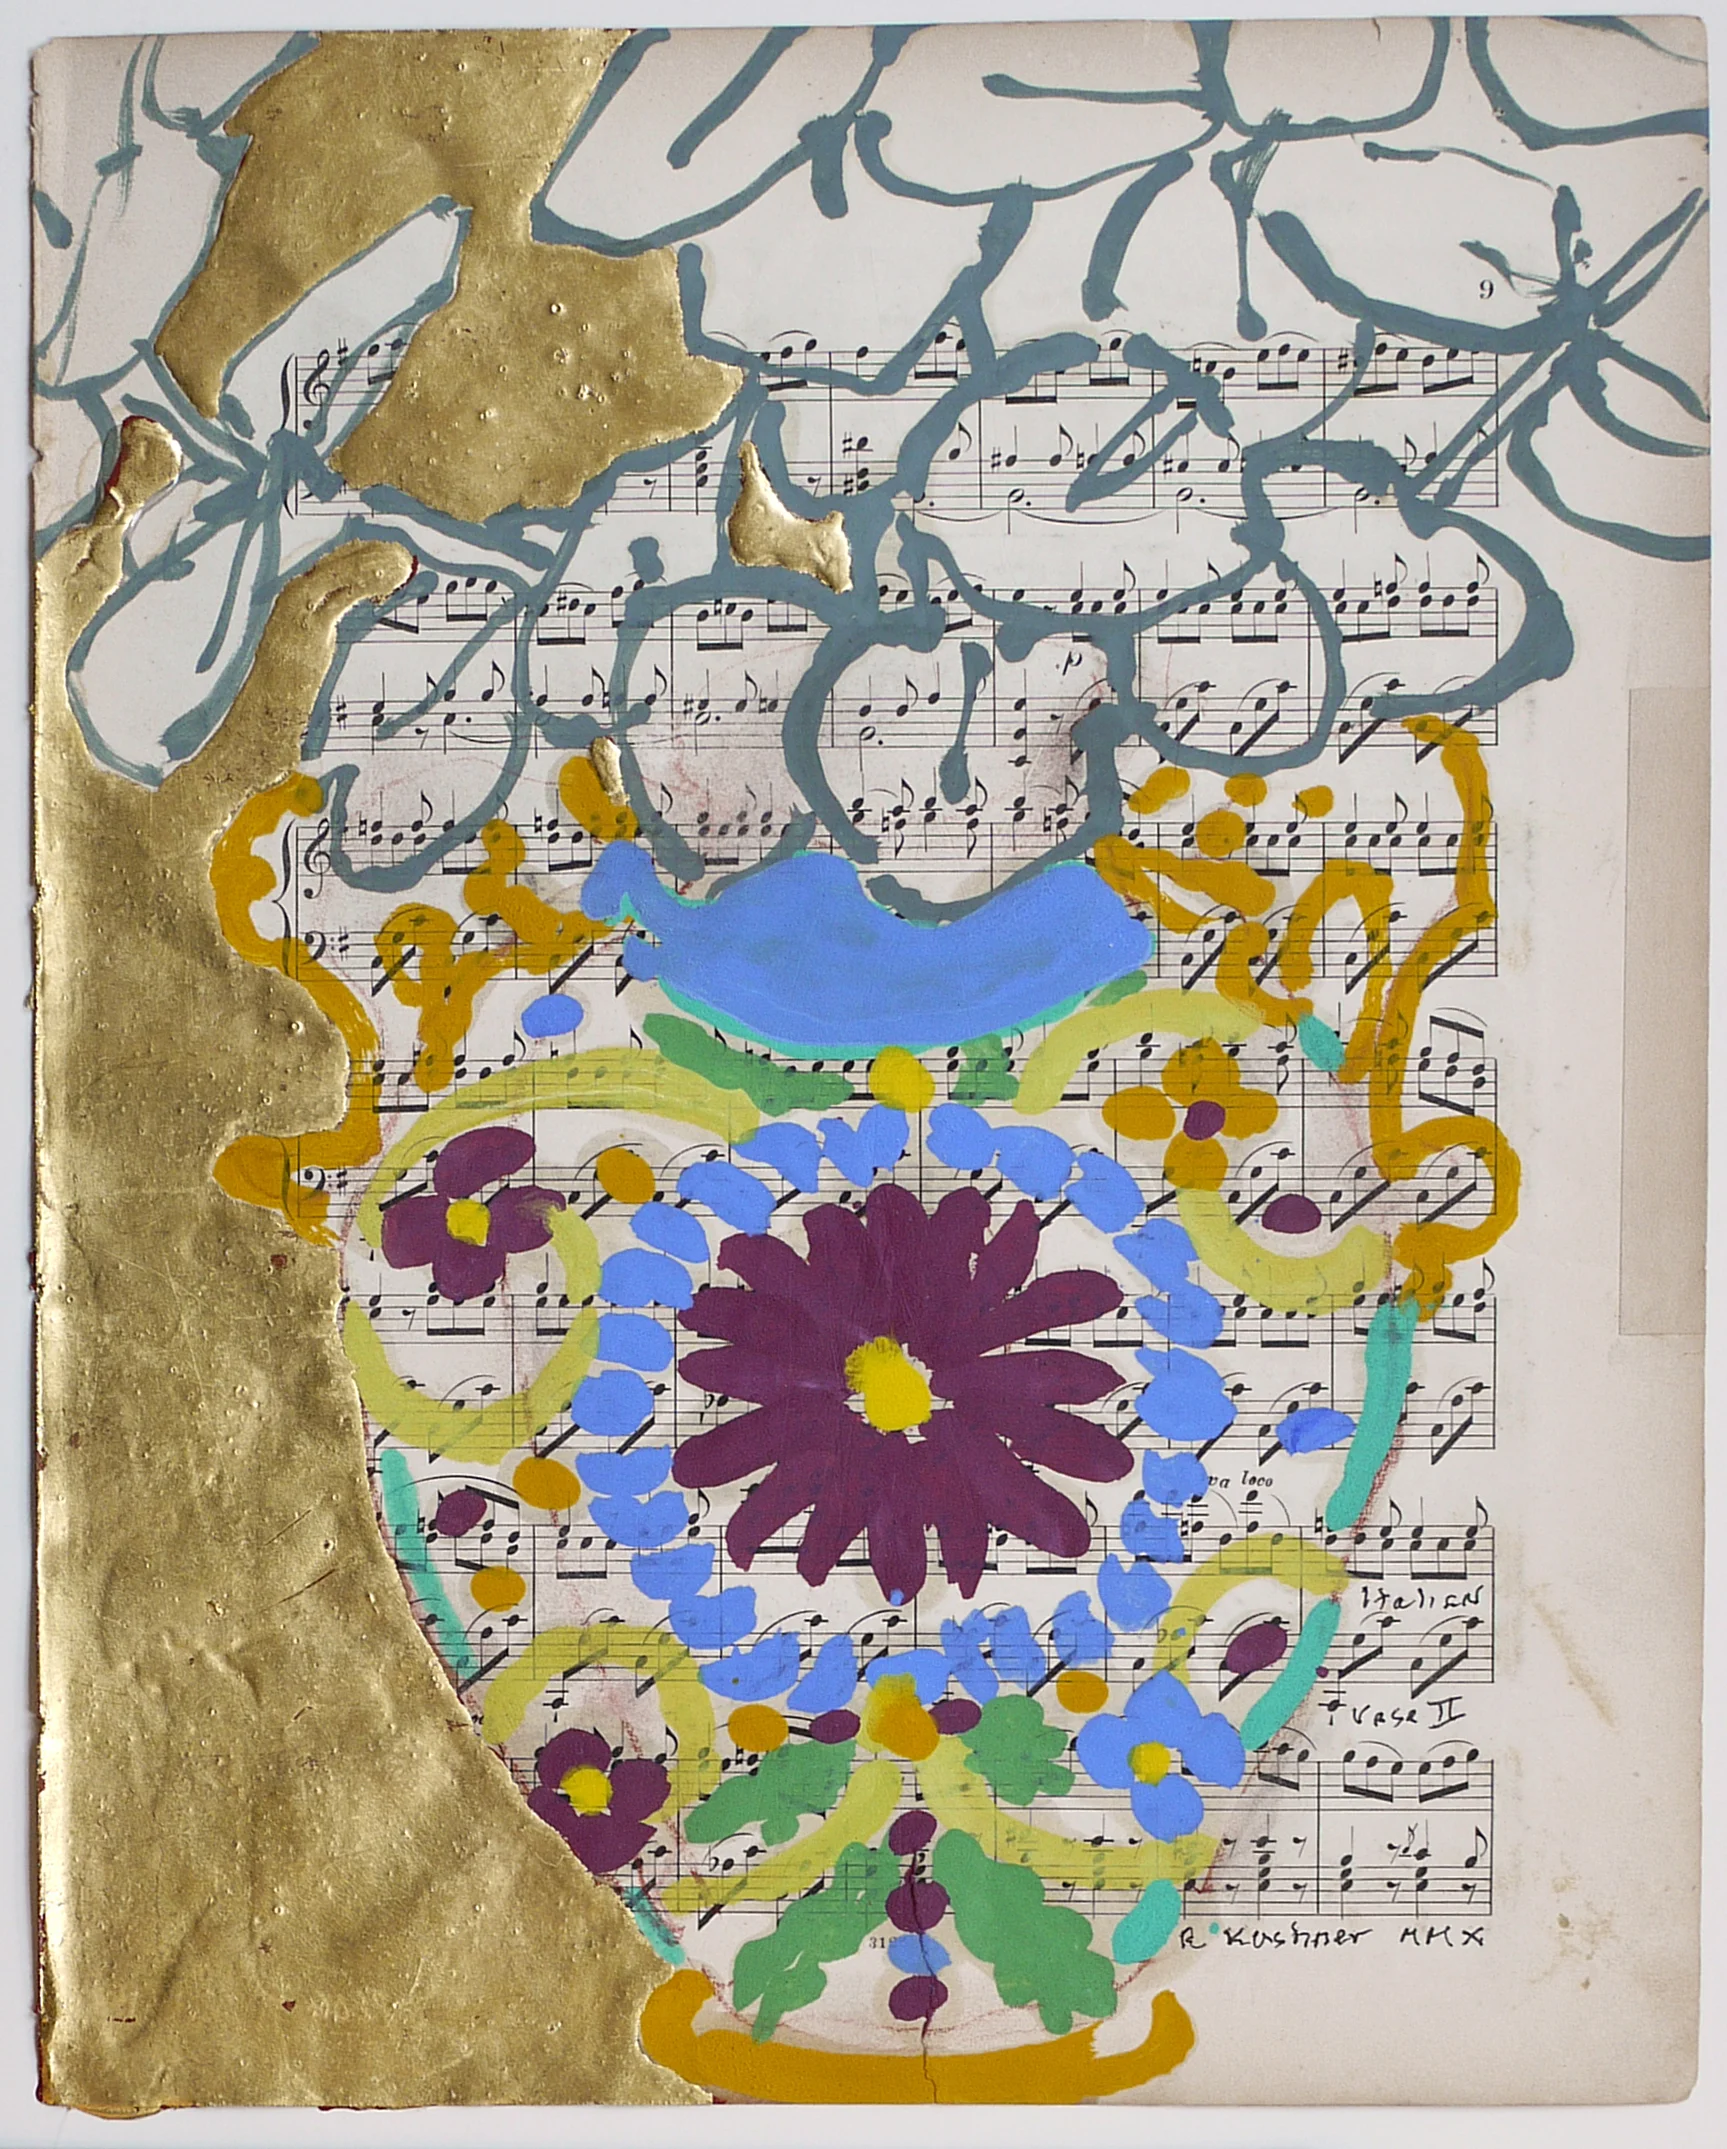 9
p
va loco
Italian
Vase II
R Kushner MMX